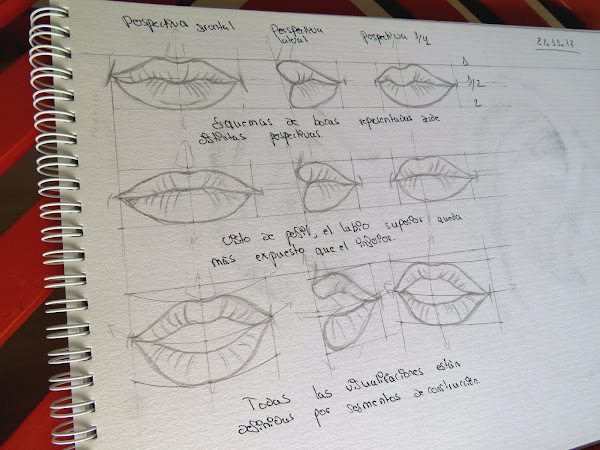 Perspectiva frontal
Perspectiva
lateral
Perspectiva 3/4
22.11.17
1
1/2
2
Esquemas de bocas representadas desde
distintas perspectivas.
Visto de perfil, el labio superior queda
más expuesto que el inferior.
Todas las visualizaciones están
definidas por segmentos de construcción.